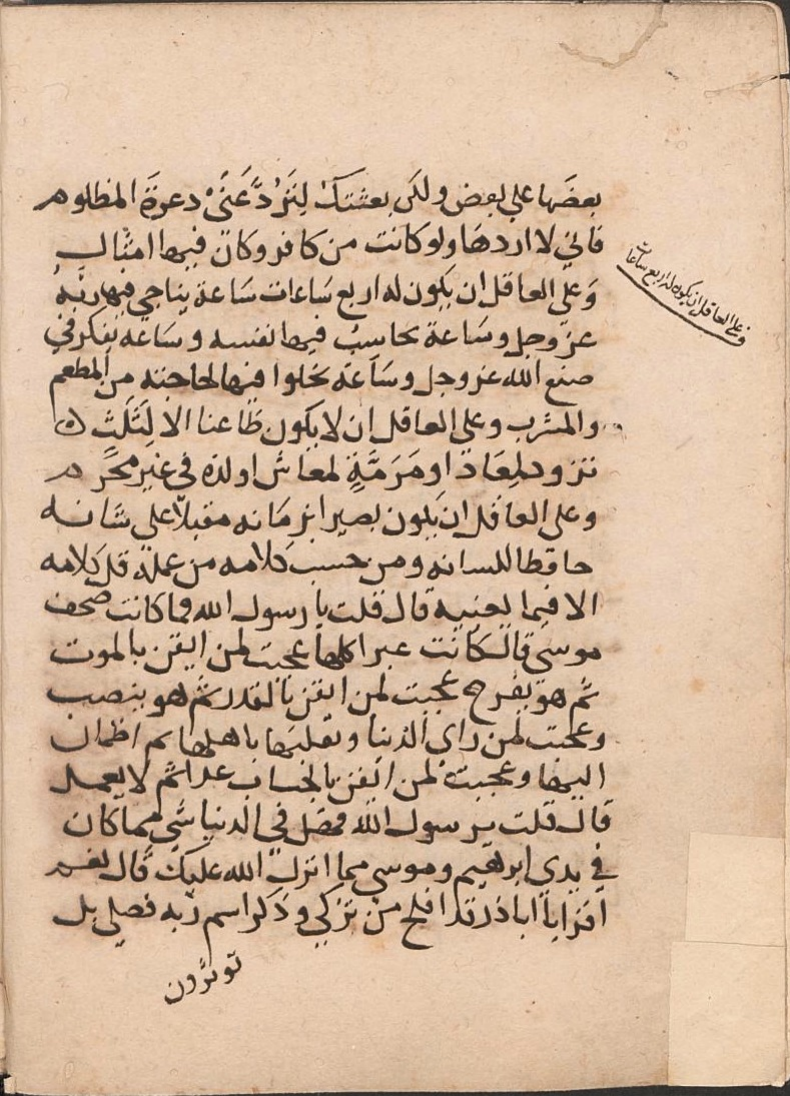 بعضَها علي بعض ولكن بعثتكْ لِتَرُدَّ عَنّىْ دعوةَ المظلوم
فاني لا اردها ولو كانت من كافر وكان فيها امثال
وَعلي العاقل ان يكون له اربع سَاعات سَاعة يناجي فيها ربَّهُ
عز وجل وسَاعة يحاسبُ فيها نفسه وسَاعه يفكر في
صنع الله عز وجل وسَاعَة يخلوا فيها لحاجته من المطعم
والمشرب وعلي العاقل ان لا يكون ظَاعنا الا لِثَلَثٍ
تزود لمِعَاد او مَرَمَّةٍ لمعاش او لذه في غير محرَّم
وعلي العاقل ان يكون بصيرا بزمَانه مقبلاً علي شانه
حافظا للسانه ومن حسب كلامه من عمله قل كلامه
الا فيما يعنيه قال قلت يا رسول الله فما كانت صحف
موسي قال كانت عبرا كلها عجبت لمن ايقن بالموت
ثم هو يفرح عجبت لمن ايقن بالقدر ثم هو ينصب
وعجبت لمن راي الدنيا وتقلبَها باهلها ثم اطمان
اليها وعجبت لمن ايقن بالحساب غدا ثم لا يعمل
قال قلت يرسول الله فهل في الدنيا شي مما كان
في يدي ابرهيم وموسي مما انزل الله عليك قال نعم
اقرا يا ابا ذر قد افلح من تزكي وذكر اسم ربه فصلي بل
توثرون
وعلى العاقل ان يكون له اربع ساعات